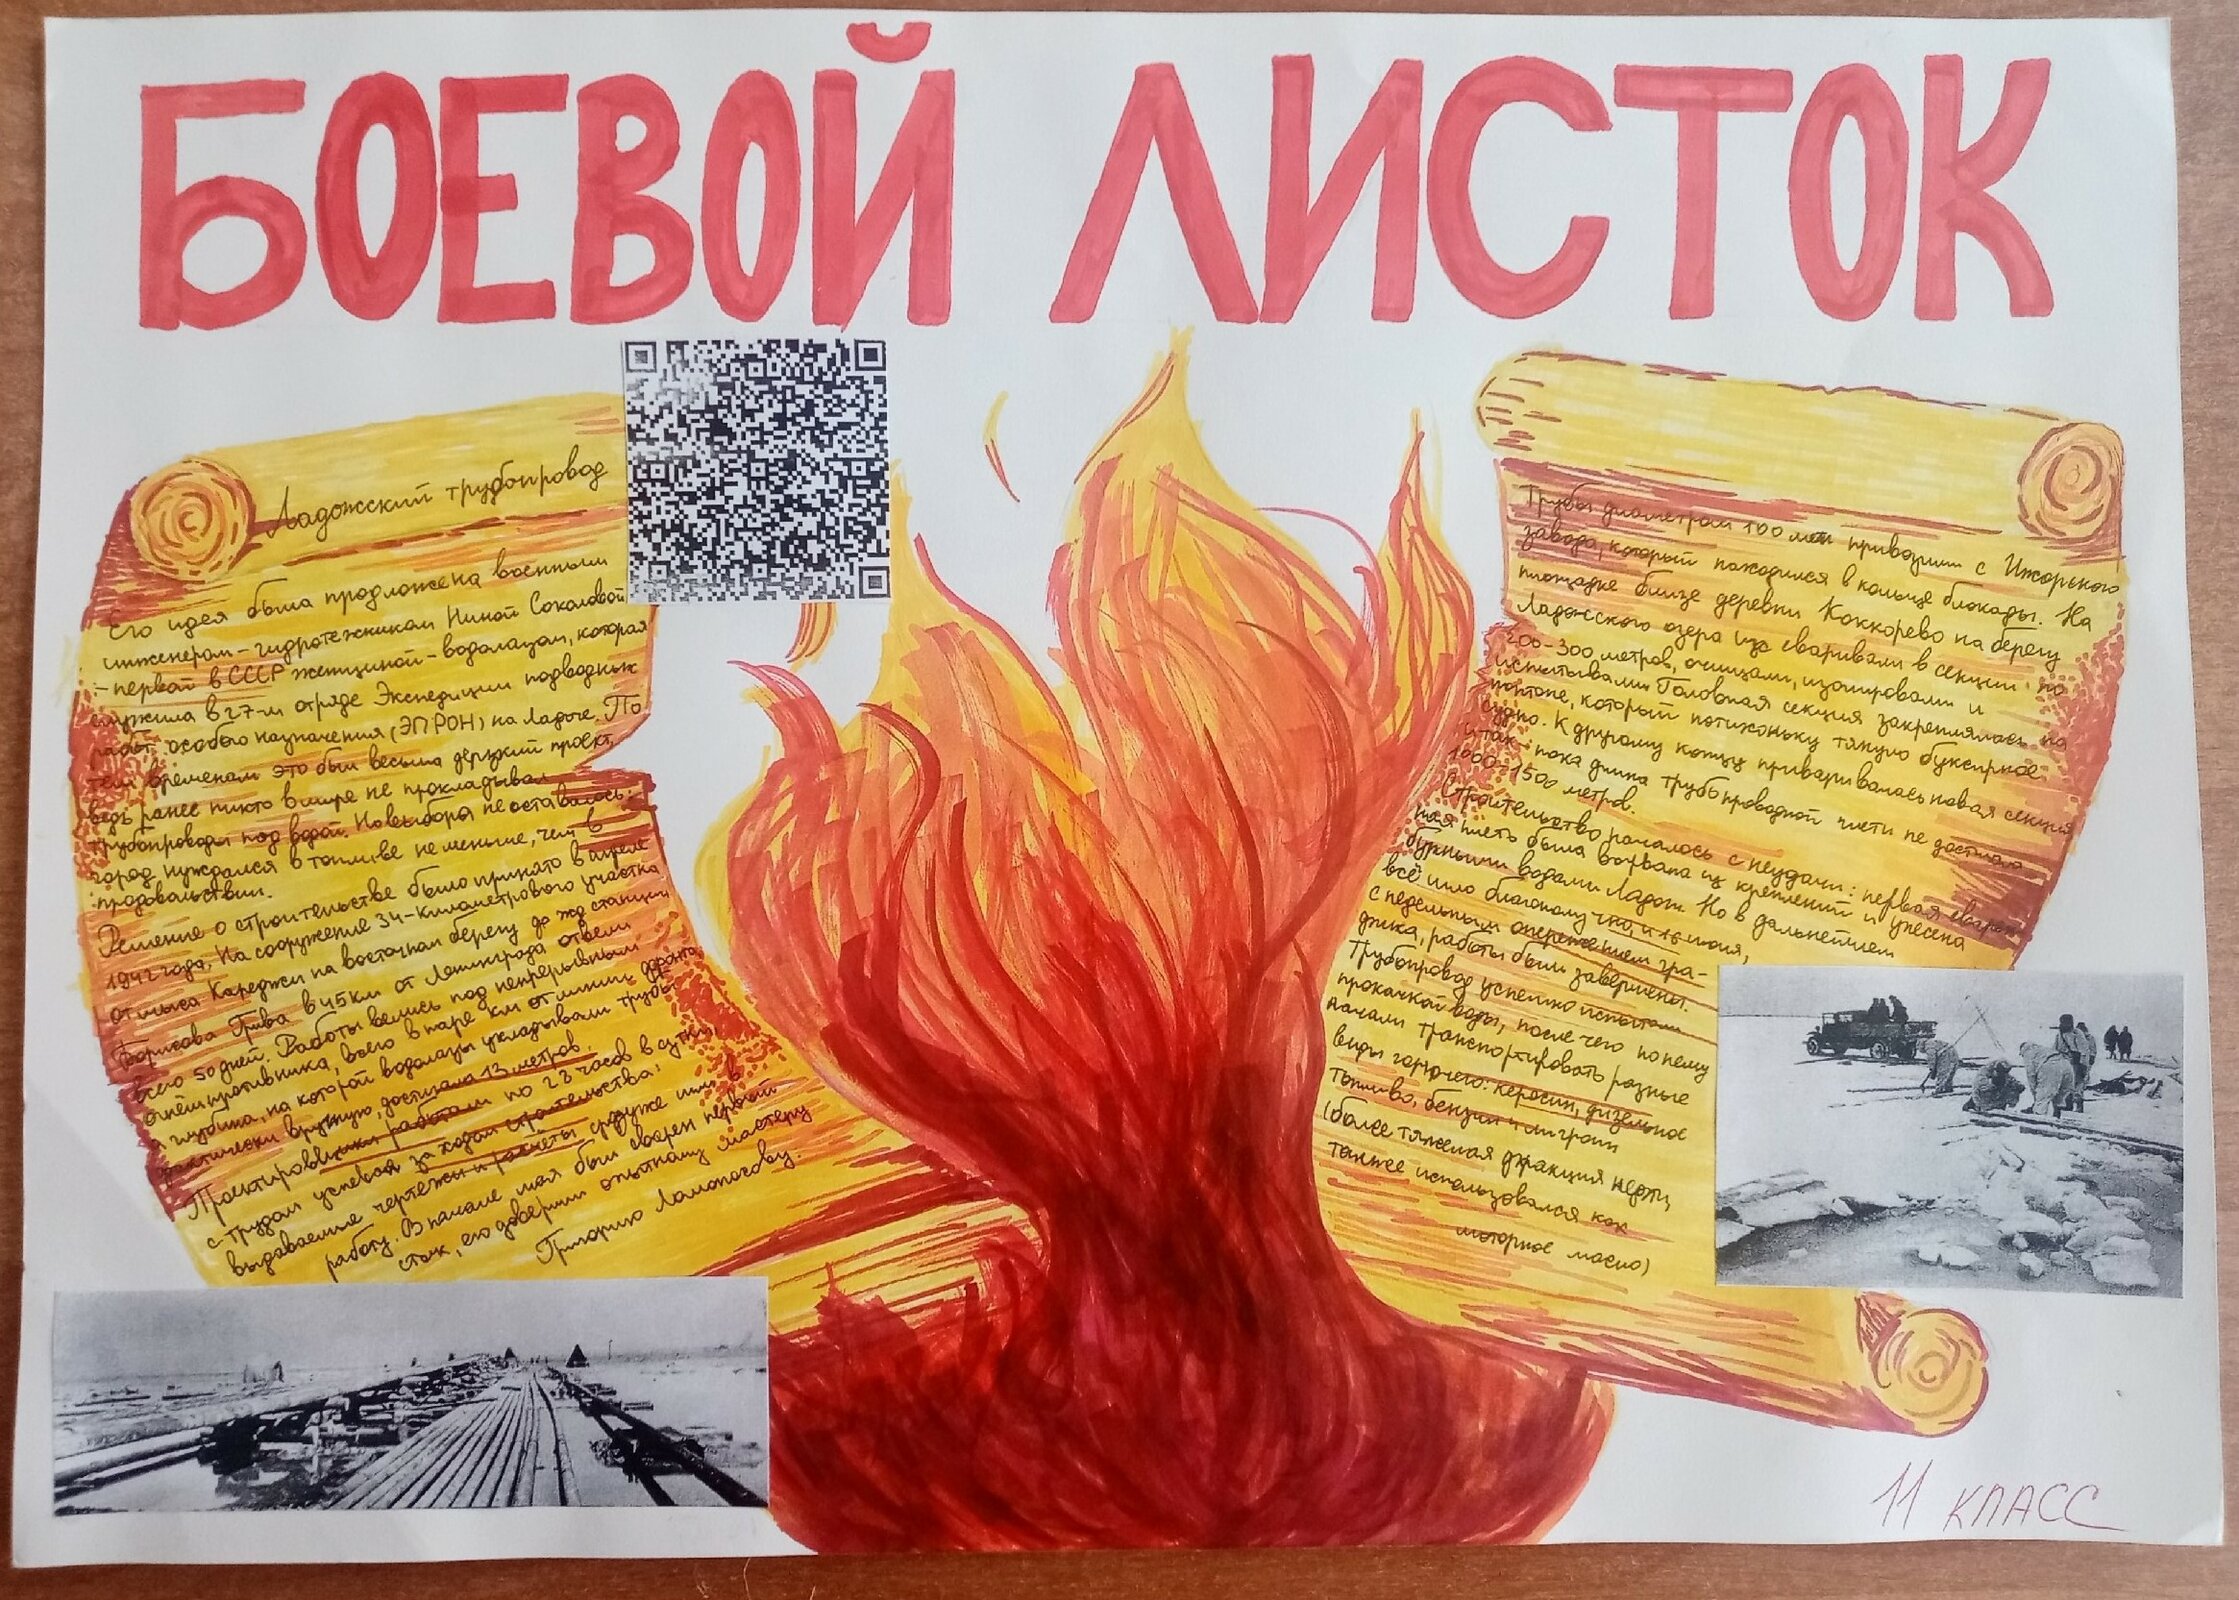 БОЕВОЙ ЛИСТОК
Ладожский трубопровод
Его идея была продложена военным
инженером-гидротехником Ниной Соколовой
-первой в СССР женщиной-водолазом, которая
служила в 27-м отряде Экспедиции подводных
работ особого назначения (ЭПРОН) на Ладоге. По
тем временам это был весьма дерзкий проект,
ведь ранее никто в мире не прокладывал
трубопроводы под водой. Но выбора не оставалось:
город нуждался в топливе не меньше, чем в
продовольствии.
Решение о строительстве было принято в апреле
1942 года. На сооружение 34-километрового участка
от мыса Кареджи на восточном берегу до жд станции
Борисова Грива в 45 км от Ленинграда отвели
всего 50 дней. Работы велись под непрерывным
огнём противника, всего в паре км от линии фронта,
а глубина, на которой водолазы укладывали трубы
фактически вручную, достигала 13 метров.
Проектировщики работали по 23 часов в сутки,
с трудом успевая за ходом строительства:
выдаваемые чертежи и расчёты сразу же шли в
работу. В начале мая был сварен первый
стык, его доверили опытному мастеру
Григорию Ломоносову.
Трубы диаметром 100 мм привозили с Ижорского
завода, который находился в кольце блокады. На
площадке близ деревни Коккорево на берегу
Ладожского озера их сваривали в секции по
200-300 метров, очищали, изолировали и
испытывали. Головная секция закреплялась на
понтоне, который потихоньку тянуло буксирное
судно. К другому концу приваривалась новая секция
и так пока длина трубопроводной нити не достигала
1000-1500 метров.
Строительство началось с неудачи: первая сварен-
ная плеть была вырвана из креплений и унесена
бурными водами Ладоги. Но в дальнейшем
всё шло благополучно, и 16 июня,
с недельным опережением гра-
фика, работы были завершены.
Трубопровод успешно испытали
прокачкой воды, после чего по нему
начали транспортировать разные
виды горючего: керосин, дизельное
топливо, бензин и лигроин
(более тяжелая фракция нефти,
также использовался как
моторное масло)
11 КЛАСС